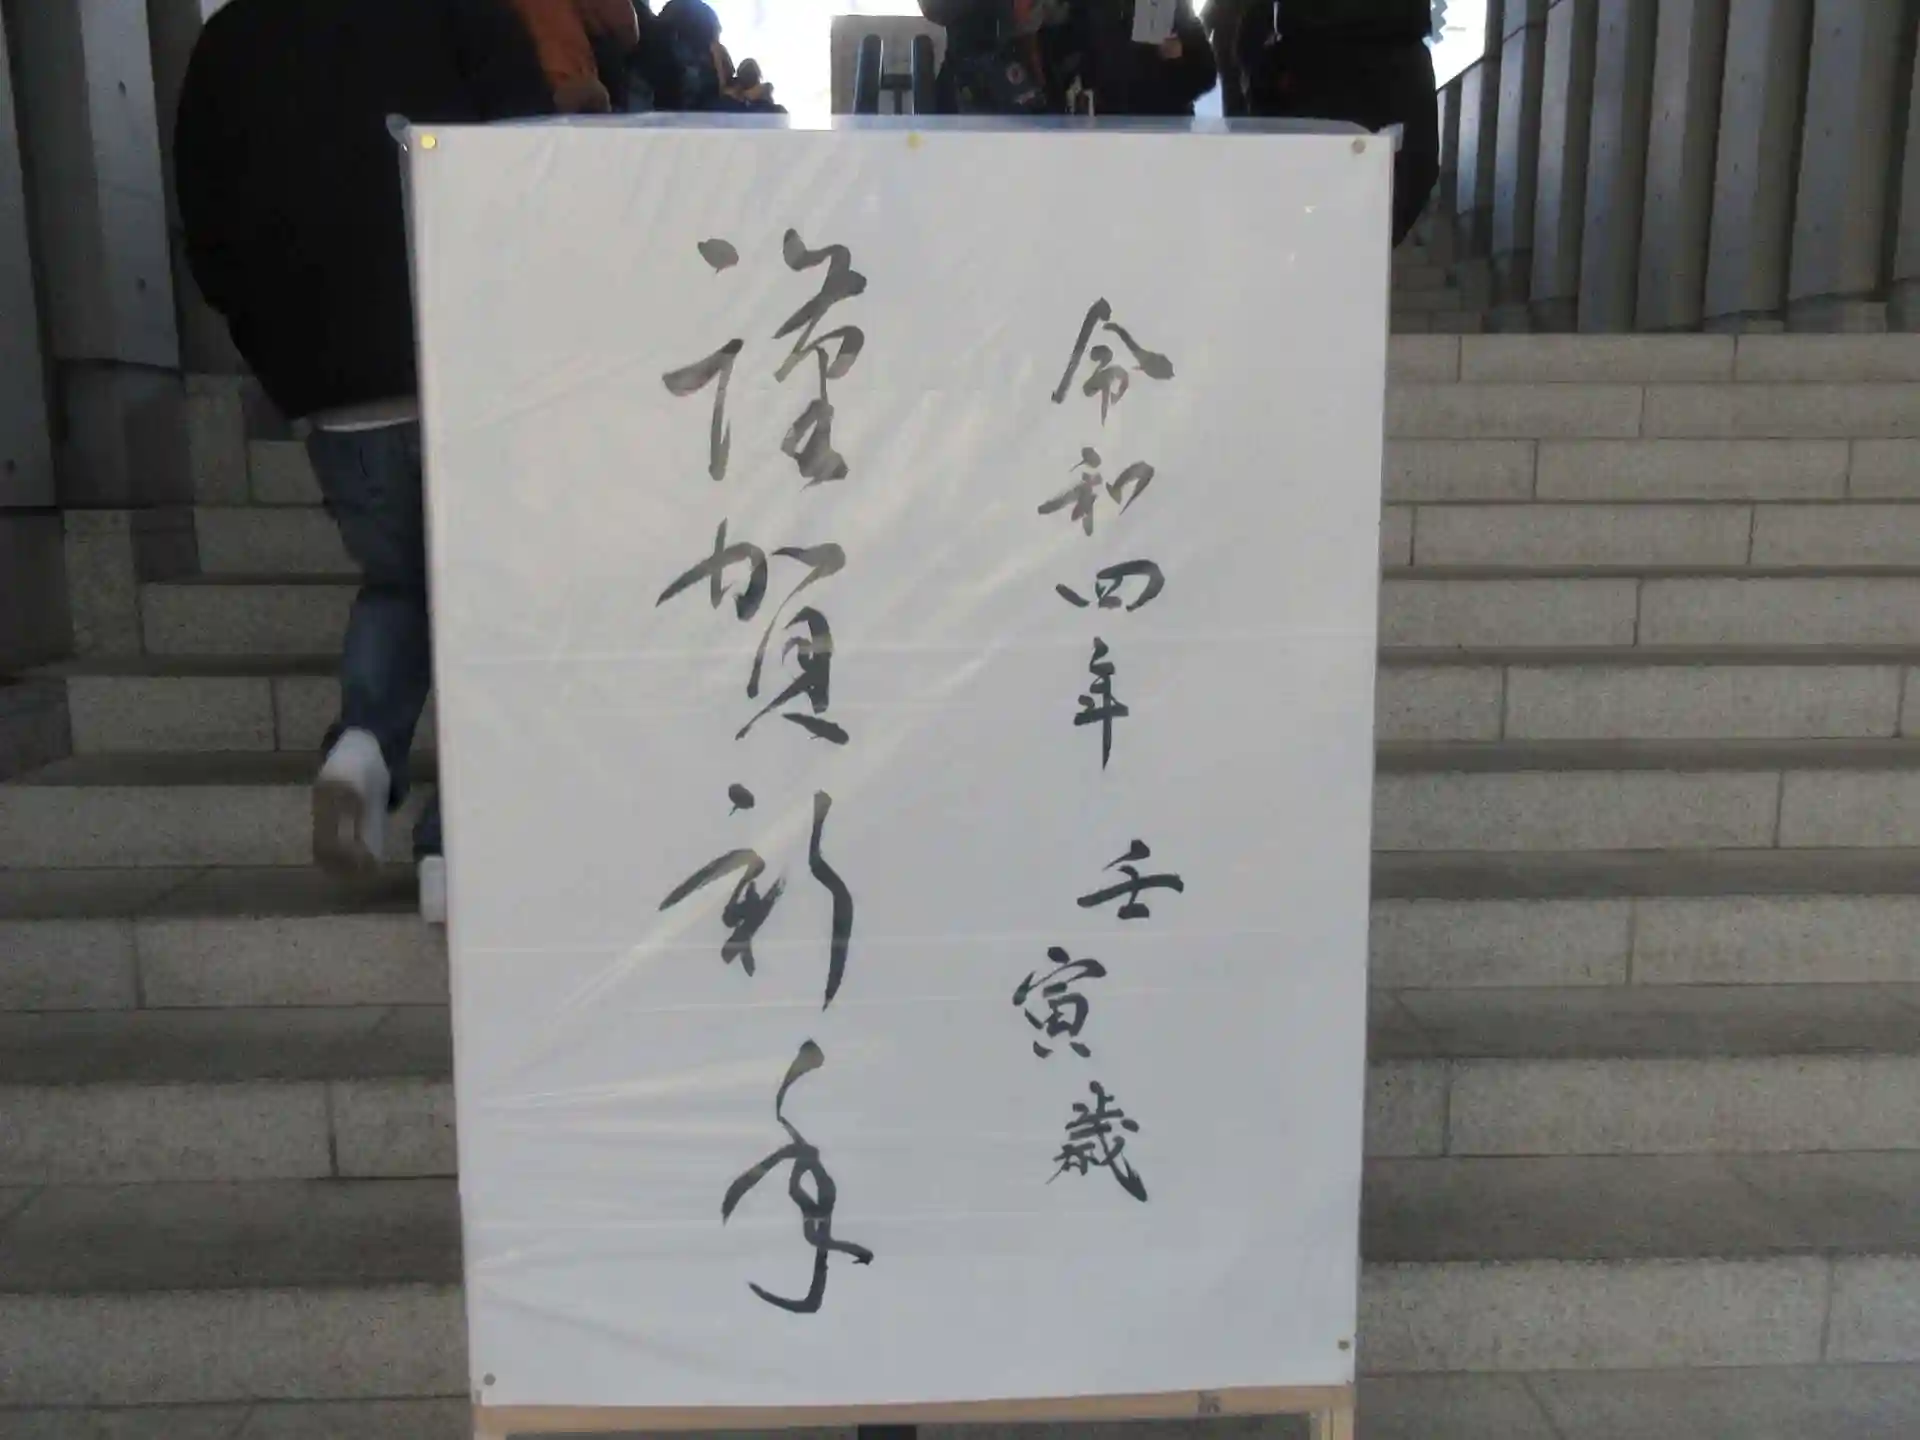 令和四年 壬寅歳
謹賀新年